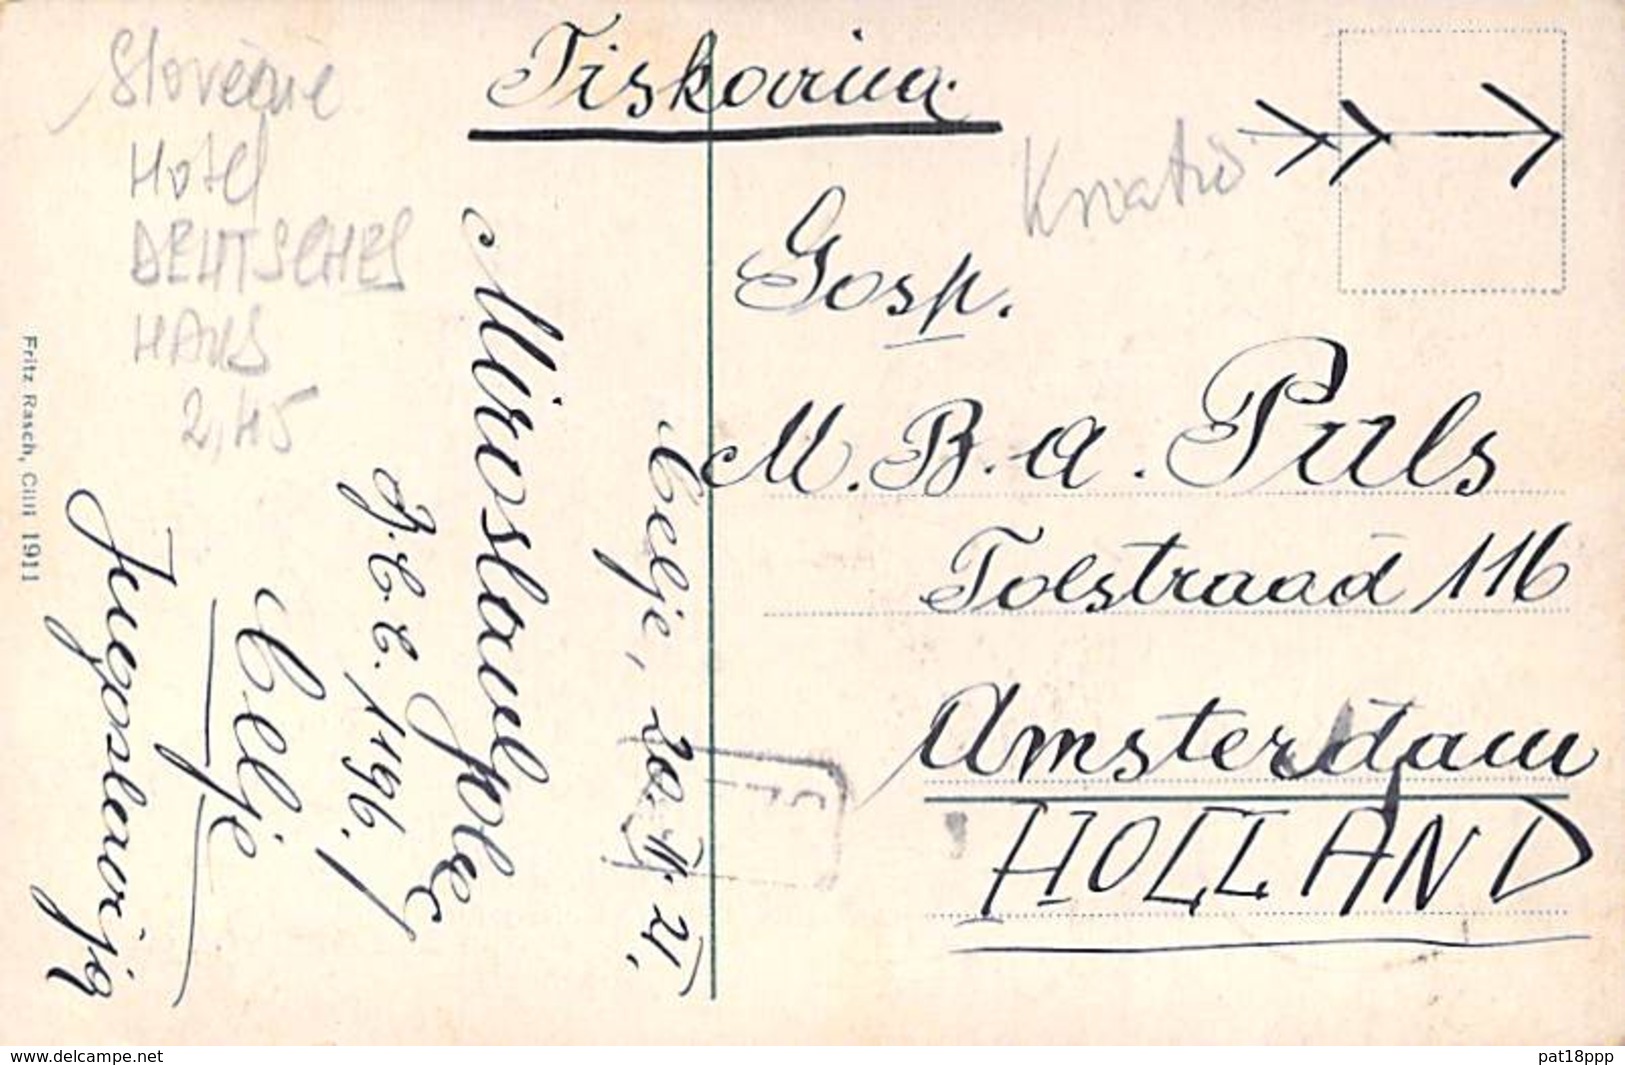 Tiskovina.
Slovénie
Hotel
DEUTSCHES
HAUS
2,45
Gosp.
M. B. a. Puls
Tolstraad 116
Amsterdam
HOLLAND
Celje, 20. II. 21.
Miroslav
1496.
Celje
Jugoslavija
Fritz Rasch, Cilli 1911
www.delcampe.net
pat18ppp